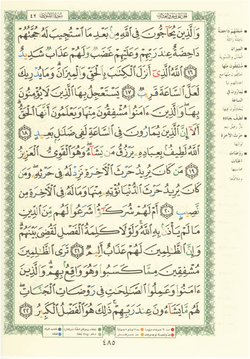 سُورَةُ الشُّورَىٰ ٤٢
وَٱلَّذِينَ يُحَآجُّونَ فِى ٱللَّهِ مِنۢ بَعْدِ مَا ٱسْتُجِيبَ لَهُۥ حُجَّتُهُمْ
دَاحِضَةٌ عِندَ رَبِّهِمْ وَعَلَيْهِمْ غَضَبٌ وَلَهُمْ عَذَابٌ شَدِيدٌ
١٦ ٱللَّهُ ٱلَّذِىٓ أَنزَلَ ٱلْكِتَٰبَ بِٱلْحَقِّ وَٱلْمِيزَانَ وَمَا يُدْرِيكَ
لَعَلَّ ٱلسَّاعَةَ قَرِيبٌ ١٧ يَسْتَعْجِلُ بِهَا ٱلَّذِينَ لَا يُؤْمِنُونَ
بِهَا وَٱلَّذِينَ ءَامَنُوا۟ مُشْفِقُونَ مِنْهَا وَيَعْلَمُونَ أَنَّهَا ٱلْحَقُّ
أَلَآ إِنَّ ٱلَّذِينَ يُمَارُونَ فِى ٱلسَّاعَةِ لَفِى ضَلَٰلٍۭ بَعِيدٍ ١٨
ٱللَّهُ لَطِيفٌۢ بِعِبَادِهِۦ يَرْزُقُ مَن يَشَآءُ وَهُوَ ٱلْقَوِىُّ ٱلْعَزِيزُ
١٩ مَن كَانَ يُرِيدُ حَرْثَ ٱلْءَاخِرَةِ نَزِدْ لَهُۥ فِى حَرْثِهِۦ وَمَن
كَانَ يُرِيدُ حَرْثَ ٱلدُّنْيَا نُؤْتِهِۦ مِنْهَا وَمَا لَهُۥ فِى ٱلْءَاخِرَةِ مِن
نَّصِيبٍ ٢٠ أَمْ لَهُمْ شُرَكَٰٓؤُا۟ شَرَعُوا۟ لَهُم مِّنَ ٱلدِّينِ
مَا لَمْ يَأْذَنۢ بِهِ ٱللَّهُ وَلَوْلَا كَلِمَةُ ٱلْفَصْلِ لَقُضِىَ بَيْنَهُمْ
وَإِنَّ ٱلظَّٰلِمِينَ لَهُمْ عَذَابٌ أَلِيمٌ ٢١ تَرَى ٱلظَّٰلِمِينَ
مُشْفِقِينَ مِمَّا كَسَبُوا۟ وَهُوَ وَاقِعٌۢ بِهِمْ وَٱلَّذِينَ
ءَامَنُوا۟ وَعَمِلُوا۟ ٱلصَّٰلِحَٰتِ فِى رَوْضَاتِ ٱلْجَنَّاتِ
لَهُم مَّا يَشَآءُونَ عِندَ رَبِّهِمْ ذَٰلِكَ هُوَ ٱلْفَضْلُ ٱلْكَبِيرُ ٢٢
٤٨٥